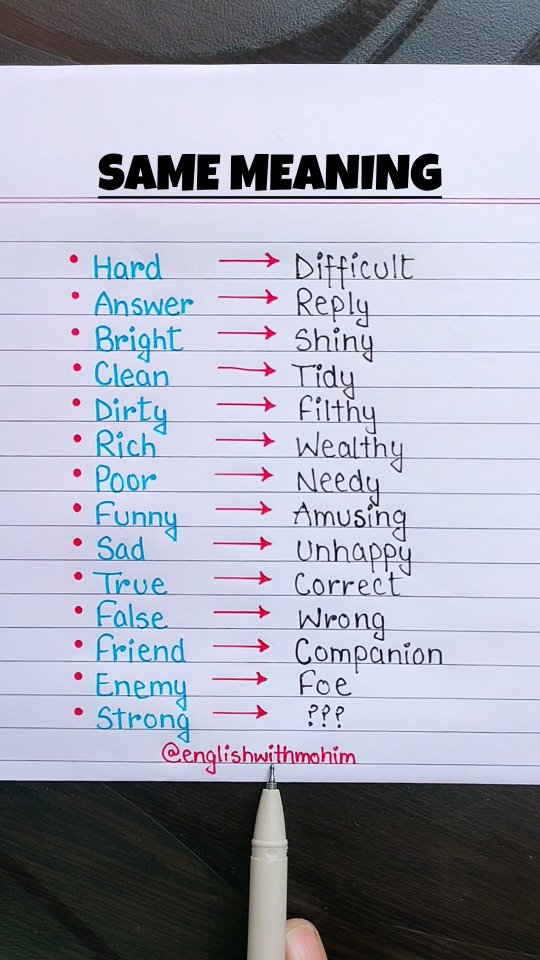 SAME MEANING
• Hard → Difficult
• Answer → Reply
• Bright → Shiny
• Clean → Tidy
• Dirty → Filthy
• Rich → Wealthy
• Poor → Needy
• Funny → Amusing
• Sad → Unhappy
• True → Correct
• False → Wrong
• Friend → Companion
• Enemy → Foe
• Strong → ???
@englishwithmohim